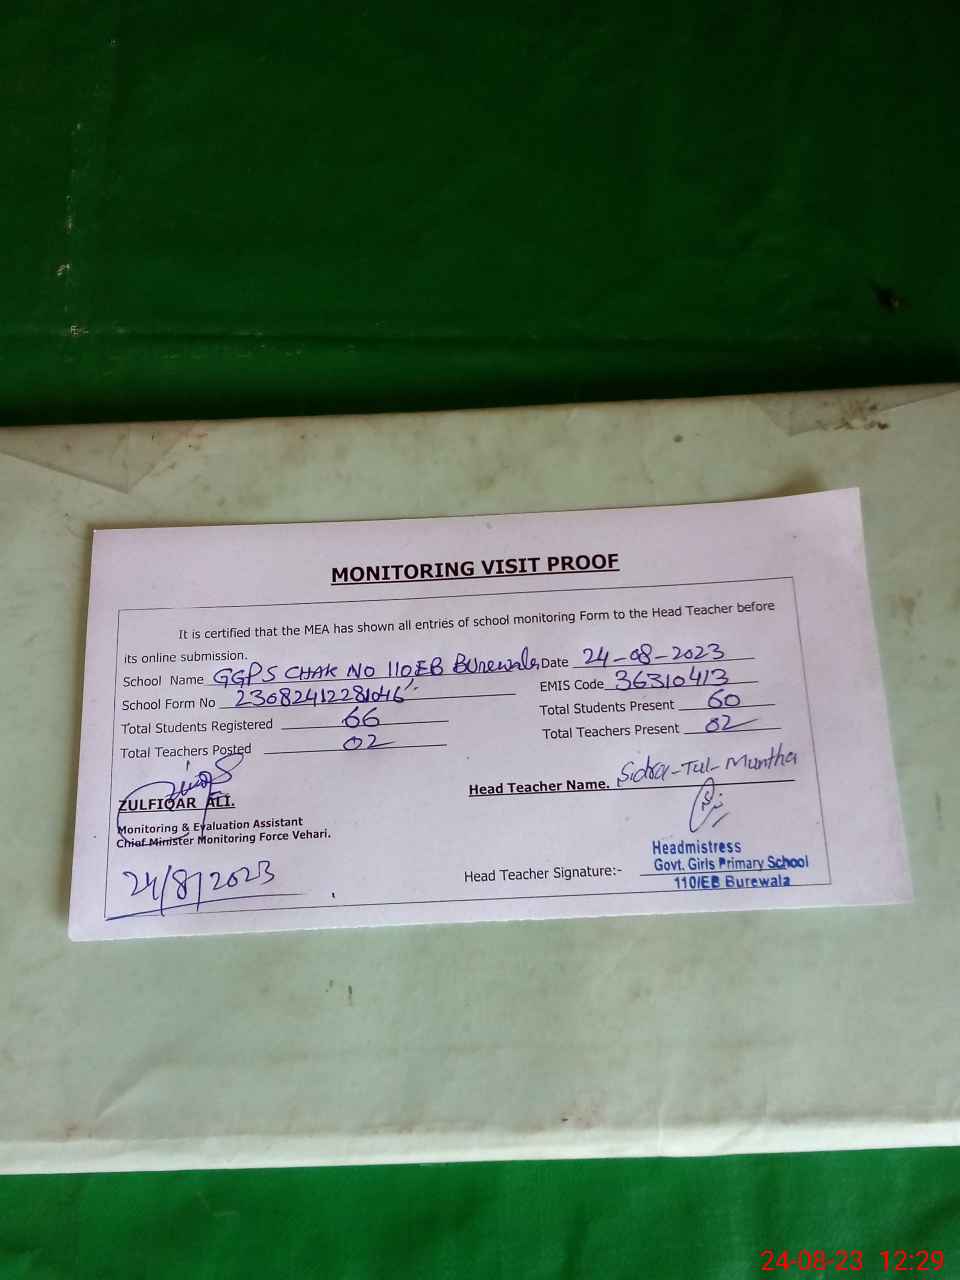 MONITORING VISIT PROOF
It is certified that the MEA has shown all entries of school monitoring Form to the Head Teacher before
its online submission.
School Name GGPS CHAK NO 110EB Burewala Date 24-08-2023
School Form No 23082412281046 EMIS Code 36310413
Total Students Registered 66 Total Students Present 60
Total Teachers Posted 02 Total Teachers Present 02
ZULFIQAR ALI. Head Teacher Name. Sidra-Tul-Muntha
Monitoring & Evaluation Assistant
Chief Minister Monitoring Force Vehari.
24/8/2023
Head Teacher Signature:-
Headmistress
Govt. Girls Primary School
110/EB Burewala
24-08-23 12:29